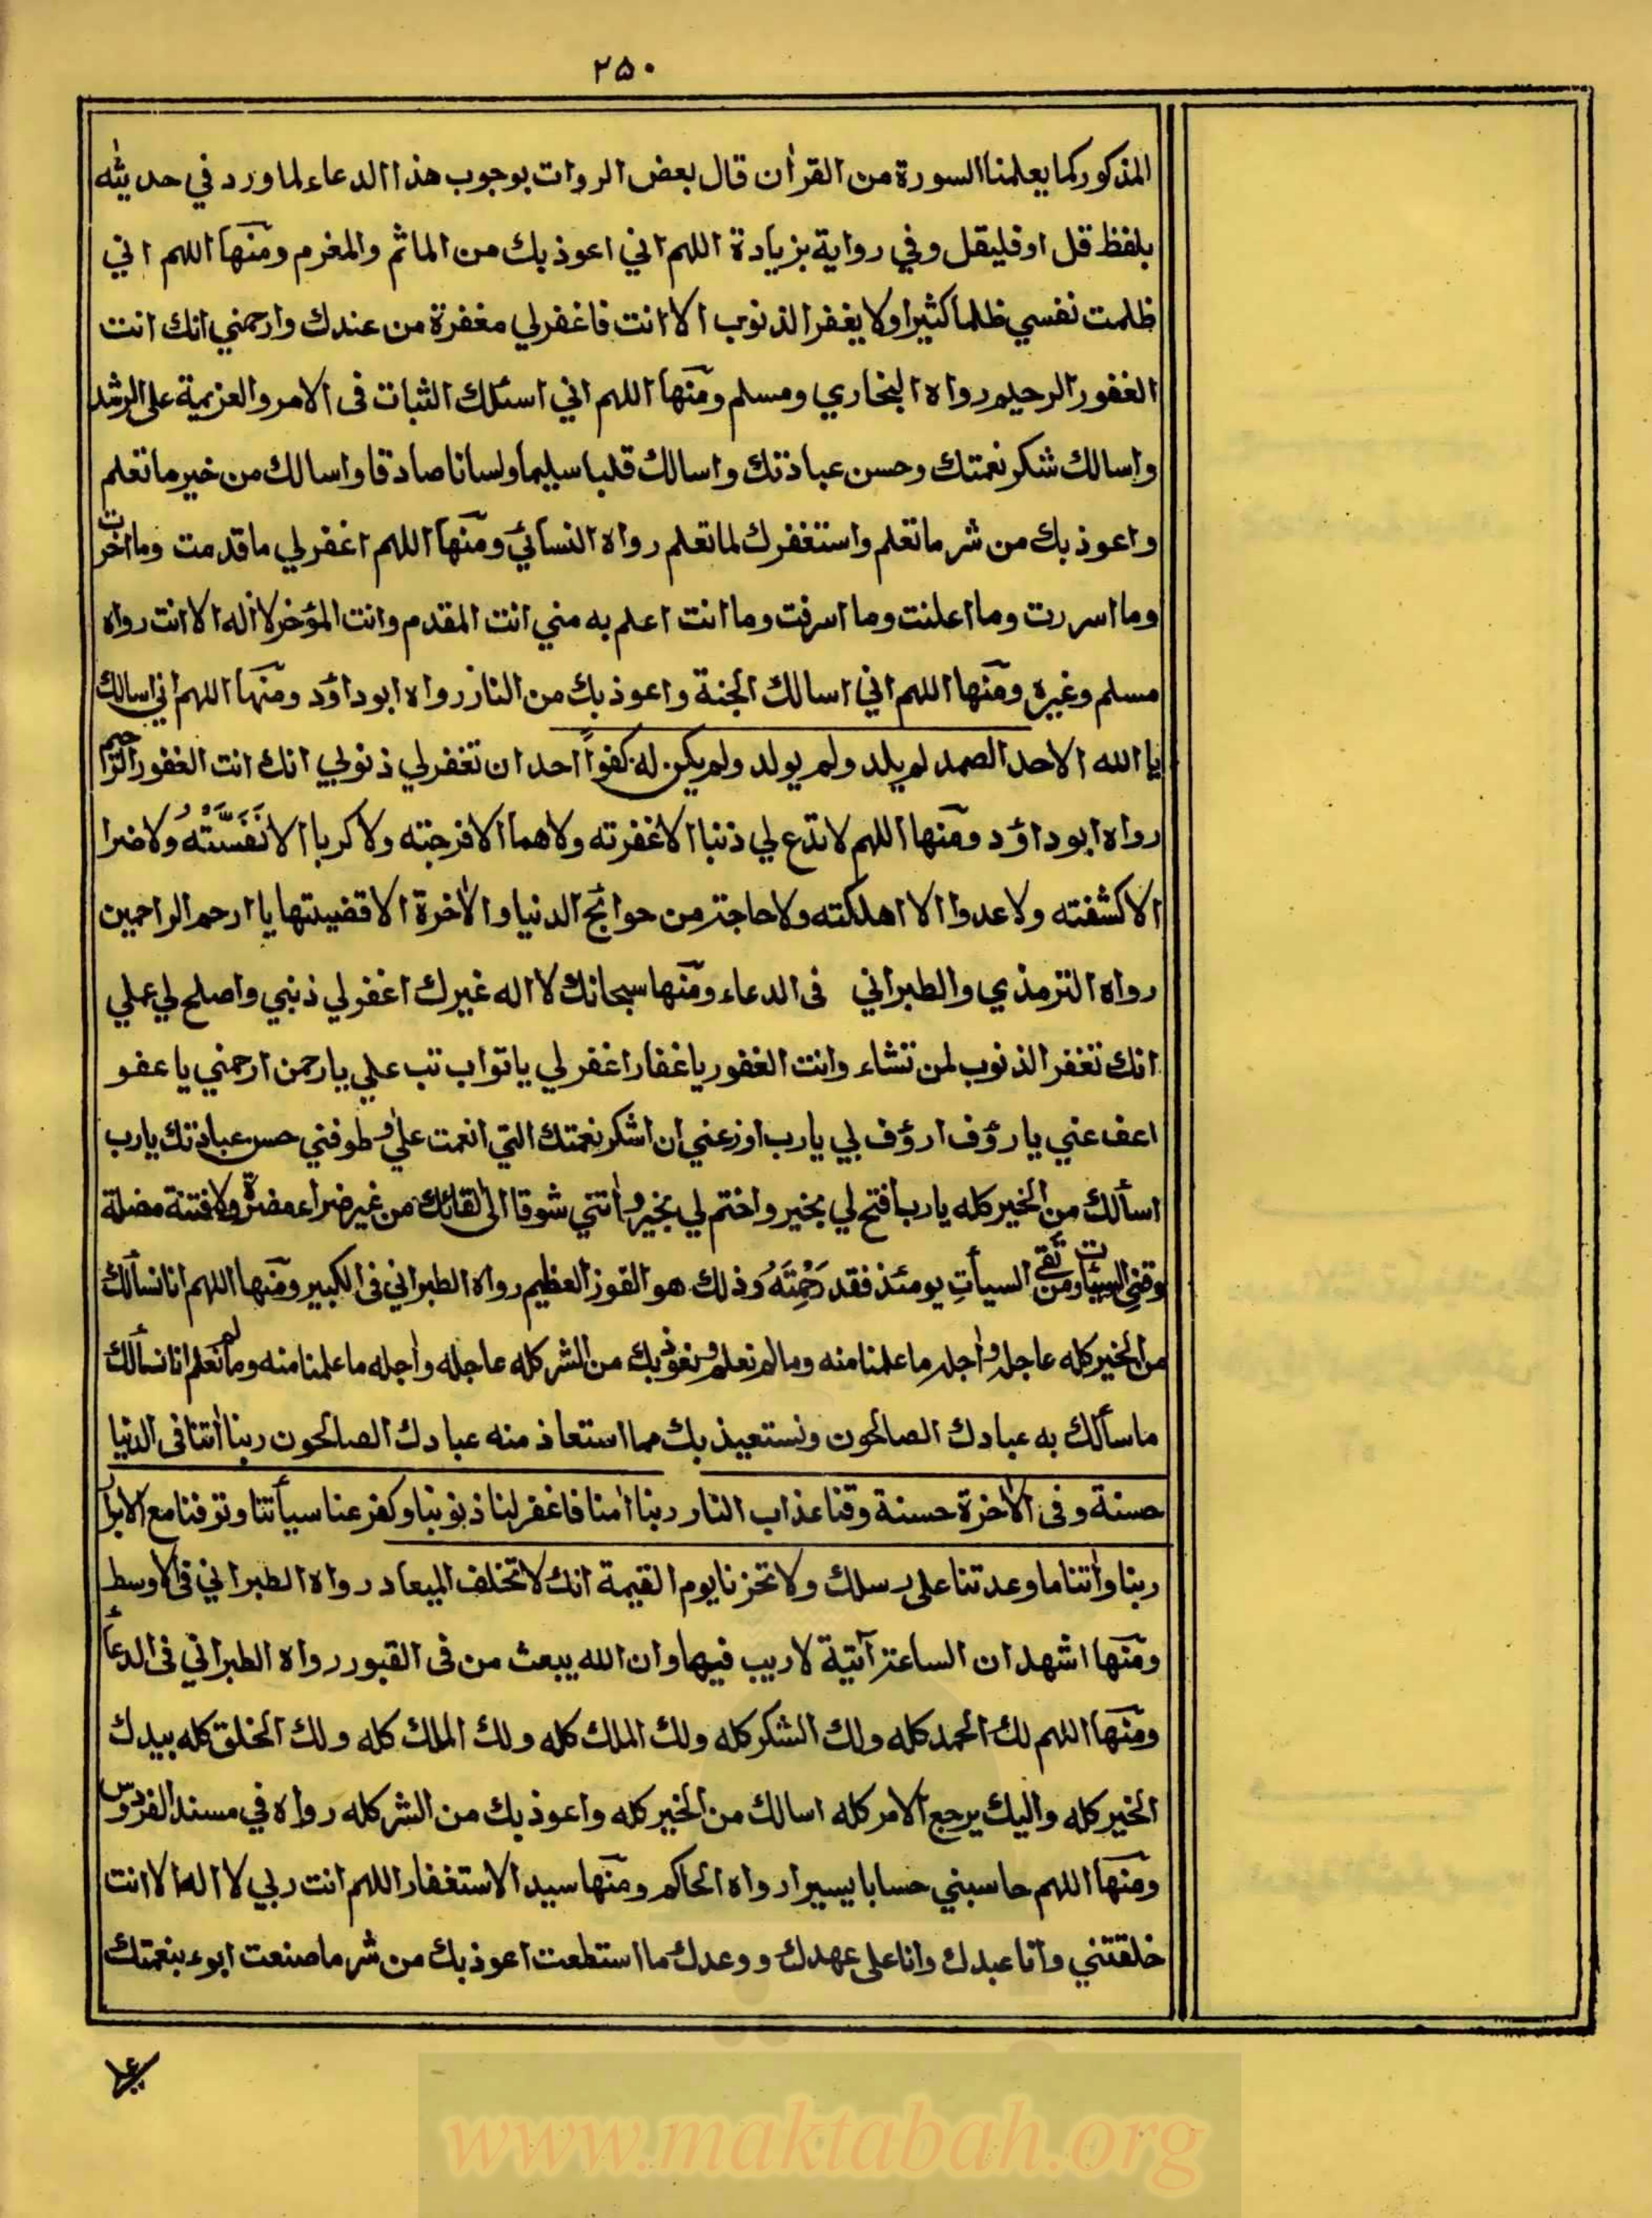 ۲۵۰
المذكور كما يعلمنا السورة من القراٰن قال بعض الروات بوجوب هذا الدعاء لما ورد في حديثه
بلفظ قل او فليقل وفي رواية بزيادة اللهم اني اعوذ بك من الماثم والمغرم ومنها اللهم اني
ظلمت نفسي ظلما كثيرا ولا يغفر الذنوب الا انت فاغفرلي مغفرة من عندك وارحمني انك انت
الغفور الرحيم رواه البخاري ومسلم ومنها اللهم اني اسئلك الثبات فى الامر والعزيمة على الرشد
واسالك شكر نعمتك وحسن عبادتك واسالك قلبا سليما ولسانا صادقا واسالك من خير ما تعلم
واعوذ بك من شر ما تعلم واستغفرك لما تعلم رواه النسائي ومنها اللهم اغفرلي ما قدمت وما اخرت
وما اسررت وما اعلنت وما اسرفت وما انت اعلم به مني انت المقدم وانت المؤخر لا اله الا انت رواه
مسلم وغيره ومنها اللهم اني اسالك الجنة واعوذ بك من النار رواه ابو داؤد ومنها اللهم اني اسالك
يا الله الاحد الصمد لم يلد ولم يولد ولم يكن له كفوا احد ان تغفرلي ذنوبي انك انت الغفور الرحيم
رواه ابو داؤد ومنها اللهم لا تدع لي ذنبا الا غفرته ولا هما الا فرجته ولا كربا الا نَفَّسْتَهُ ولا ضرا
الا كشفته ولا عدوا الا اهلكته ولا حاجة من حوائج الدنيا والاٰخرة الا قضيتها يا ارحم الراحمين
رواه الترمذي والطبراني فى الدعاء ومنها سبحانك لا اله غيرك اغفرلي ذنبي واصلح لي عملي
انك تغفر الذنوب لمن تشاء وانت الغفور يا غفار اغفرلي يا تواب تب علي يا رحمن ارحمني يا عفو
اعف عني يا رؤف ارؤف بي يا رب اوزعني ان اشكر نعمتك التي انعمت علي وطوفني حسن عبادتك يا رب
اسألك من الخير كله يا رب افتح لي بخير واختم لي بخير واٰتني شوقا الى لقائك من غير ضراء مضرة ولا فتنة مضلة
وقني السيئات ومن تقي السيأتِ يومئذ فقد رَحِمْتَهُ وذلك هو الفوز العظيم رواه الطبراني فى الكبير ومنها اللهم انا نسألك
من الخير كله عاجله واٰجله ما علمنا منه وما لم نعلم ونعوذ بك من الشر كله عاجله واٰجله ما علمنا منه وما لم نعلم انا نسألك
ما سألك به عبادك الصالحون ونستعيذ بك مما استعاذ منه عبادك الصالحون ربنا اٰتنا فى الدنيا
حسنة وفى الاٰخرة حسنة وقنا عذاب النار ربنا اٰمنا فاغفرلنا ذنوبنا وكفر عنا سيأتنا وتوفنا مع الابرار
ربنا واٰتنا ما وعدتنا على رسلك ولا تخزنا يوم القيمة انك لا تخلف الميعاد رواه الطبراني فى الاوسط
ومنها اشهد ان الساعة آتية لا ريب فيها وان الله يبعث من فى القبور رواه الطبراني فى الدعاء
ومنها اللهم لك الحمد كله ولك الشكر كله ولك الملك كله ولك الملك كله ولك الخلق كله بيدك
الخير كله واليك يرجع الامر كله اسالك من الخير كله واعوذ بك من الشر كله رواه في مسند الفردوس
ومنها اللهم حاسبني حسابا يسيرا رواه الحاكم ومنها سيد الاستغفار اللهم انت ربي لا اله الا انت
خلقتني وانا عبدك وانا على عهدك ووعدك ما استطعت اعوذ بك من شر ما صنعت ابوء بنعمتك
www.maktabah.org